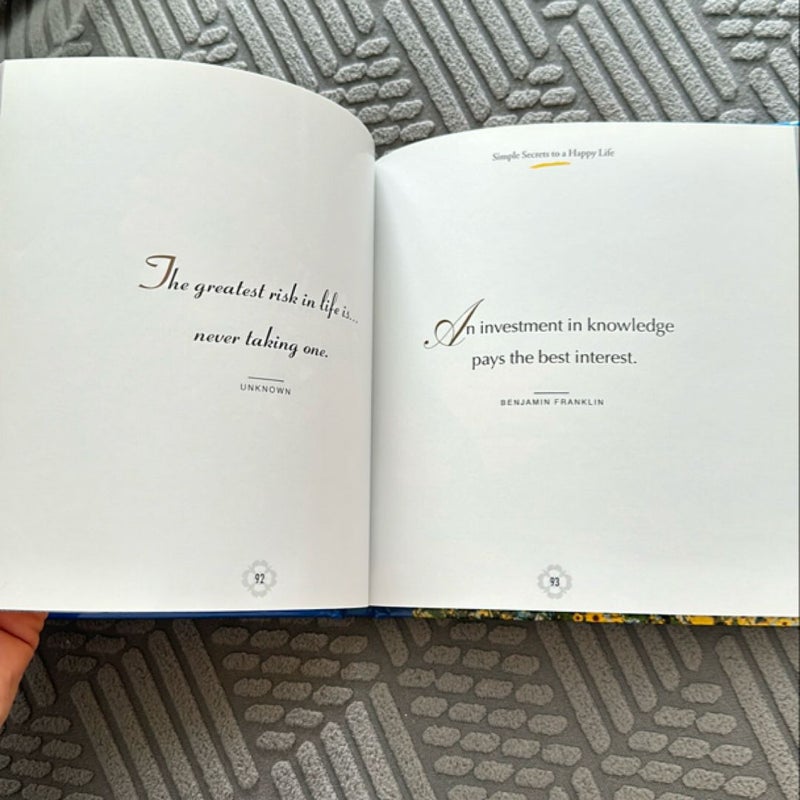 The greatest risk in life is...
never taking one.
UNKNOWN
92
Simple Secrets to a Happy Life
An investment in knowledge
pays the best interest.
BENJAMIN FRANKLIN
93